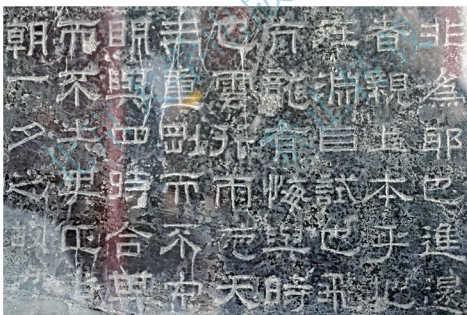 非為邪也進退
者親上本乎地
在淵自試也飛
亢龍有悔與時
也雲行雨施天
九重剛而不中
明與四時合其
而不失其正
朝一夕之故